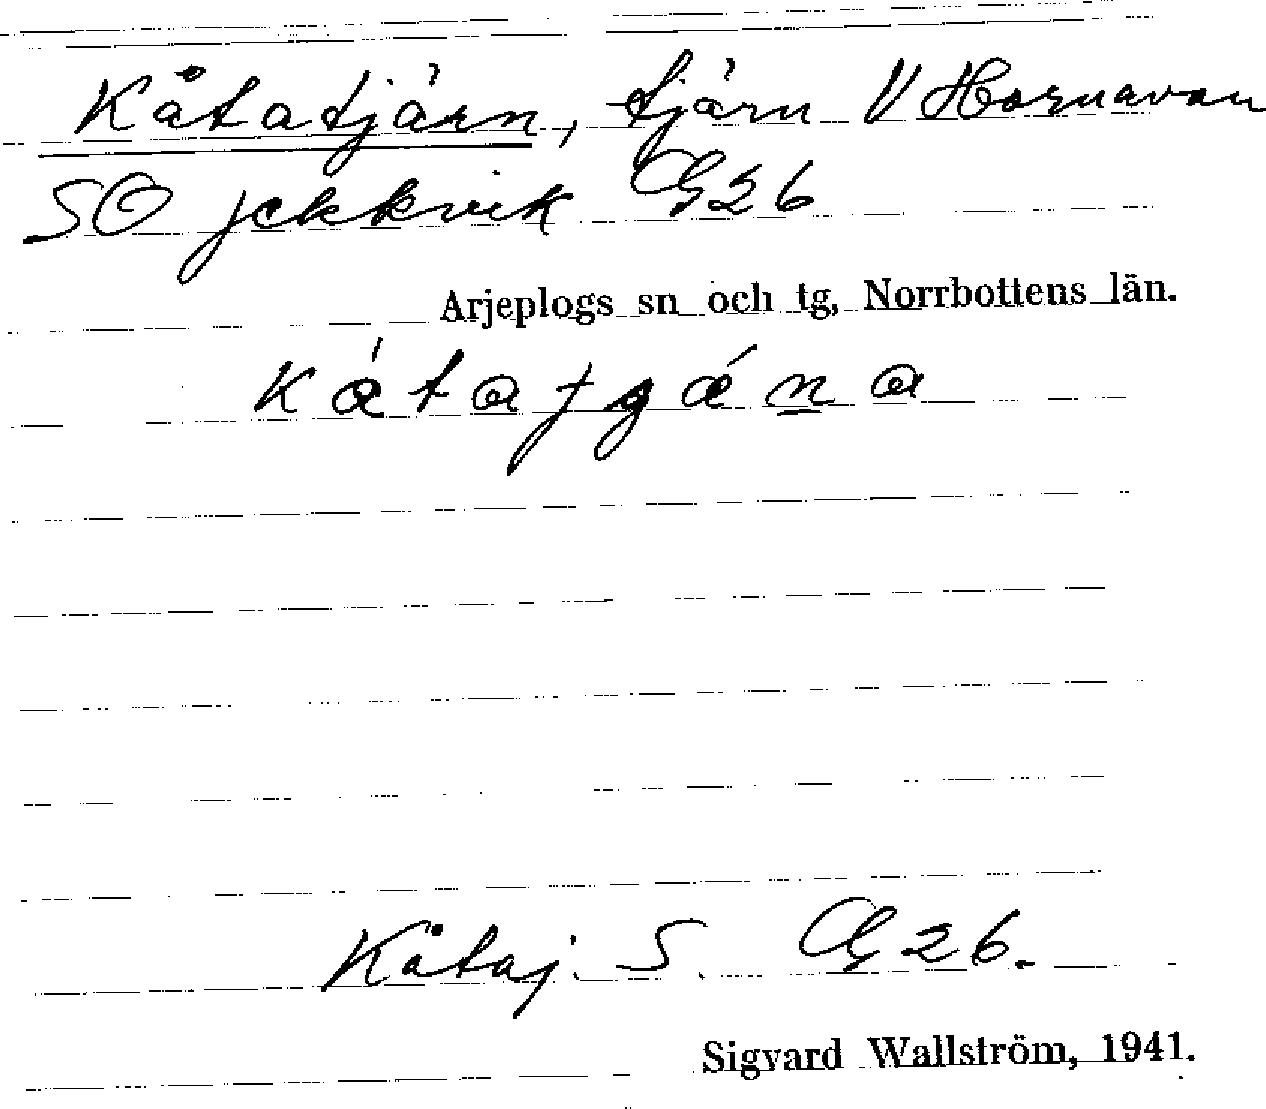 Kåtatjärn, tjärn V Hornavan
SO jekkvik G26
Arjeplogs sn och tg, Norrbottens län.
Kåtaj. S. G26.
Sigvard Wallström, 1941.